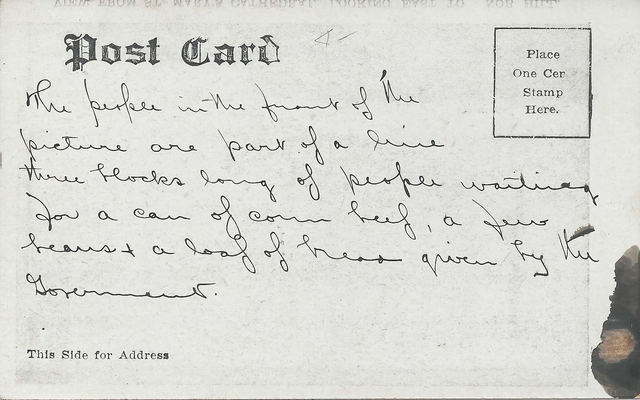 VIEW FROM ST. MARY'S CATHEDRAL LOOKING EAST TO NOB HILL
Post Card
Place
One Cen
Stamp
Here.
The people in the front of the
picture are part of a line
three blocks long of people waiting
for a can of corn beef, a few
beans & a loaf of bread given by the
Goverment.
This Side for Address